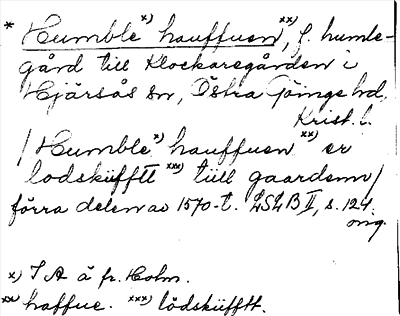 * Humble x) hauffuen xx), f. humle-
gård till Klockaregården i
Hjärsås sn, Östra Göinge hd,
Krist. l.
/Humble x) hauffuen xx) er
lodskiifftt xxx) tiill gaardenn/
förra delen av 1570-t. LSLB II, s. 124.
orig.
x) I A å fr. Holm.
xx) haffue. xxx) lödskiifftt.